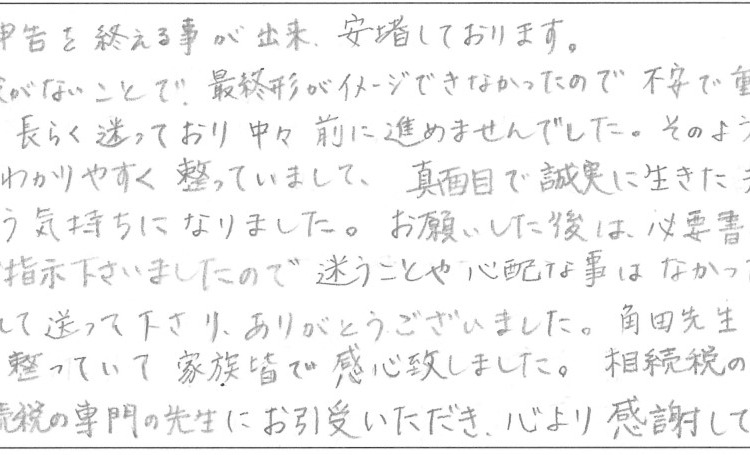 申告を終える事が出来、安堵しております。
がないことで、最終形がイメージできなかったので不安で
長らく迷っており中々前に進めませんでした。そのよう
わかりやすく整っていまして、真面目で誠実に生きた
う気持ちになりました。お願いした後は、必要書
指示下さいましたので迷うことや心配な事はなかっ
して送って下さり、ありがとうございました。角田先生
整っていて家族皆で感心致しました。相続税の
続税の専門の先生にお引受いただき、心より感謝して